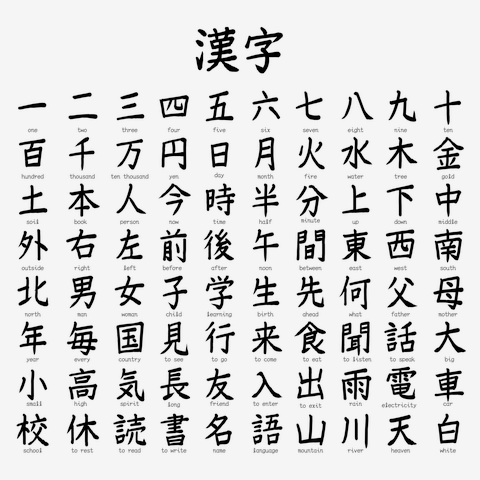 漢字
一 二 三 四 五 六 七 八 九 十
one two three four five six seven eight nine ten
百 千 万 円 日 月 火 水 木 金
hundred thousand ten thousand yen day month fire water tree gold
土 本 人 今 時 半 分 上 下 中
soil book person now time half minute up down middle
外 右 左 前 後 午 間 東 西 南
outside right left before after noon between east west south
北 男 女 子 学 生 先 何 父 母
north man woman child learning birth ahead what father mother
年 毎 国 見 行 来 食 聞 話 大
year every country to see to go to come to eat to listen to speak big
小 高 気 長 友 入 出 雨 電 車
small high spirit long friend to enter to exit rain electricity car
校 休 読 書 名 語 山 川 天 白
school to rest to read to write name language mountain river heaven white